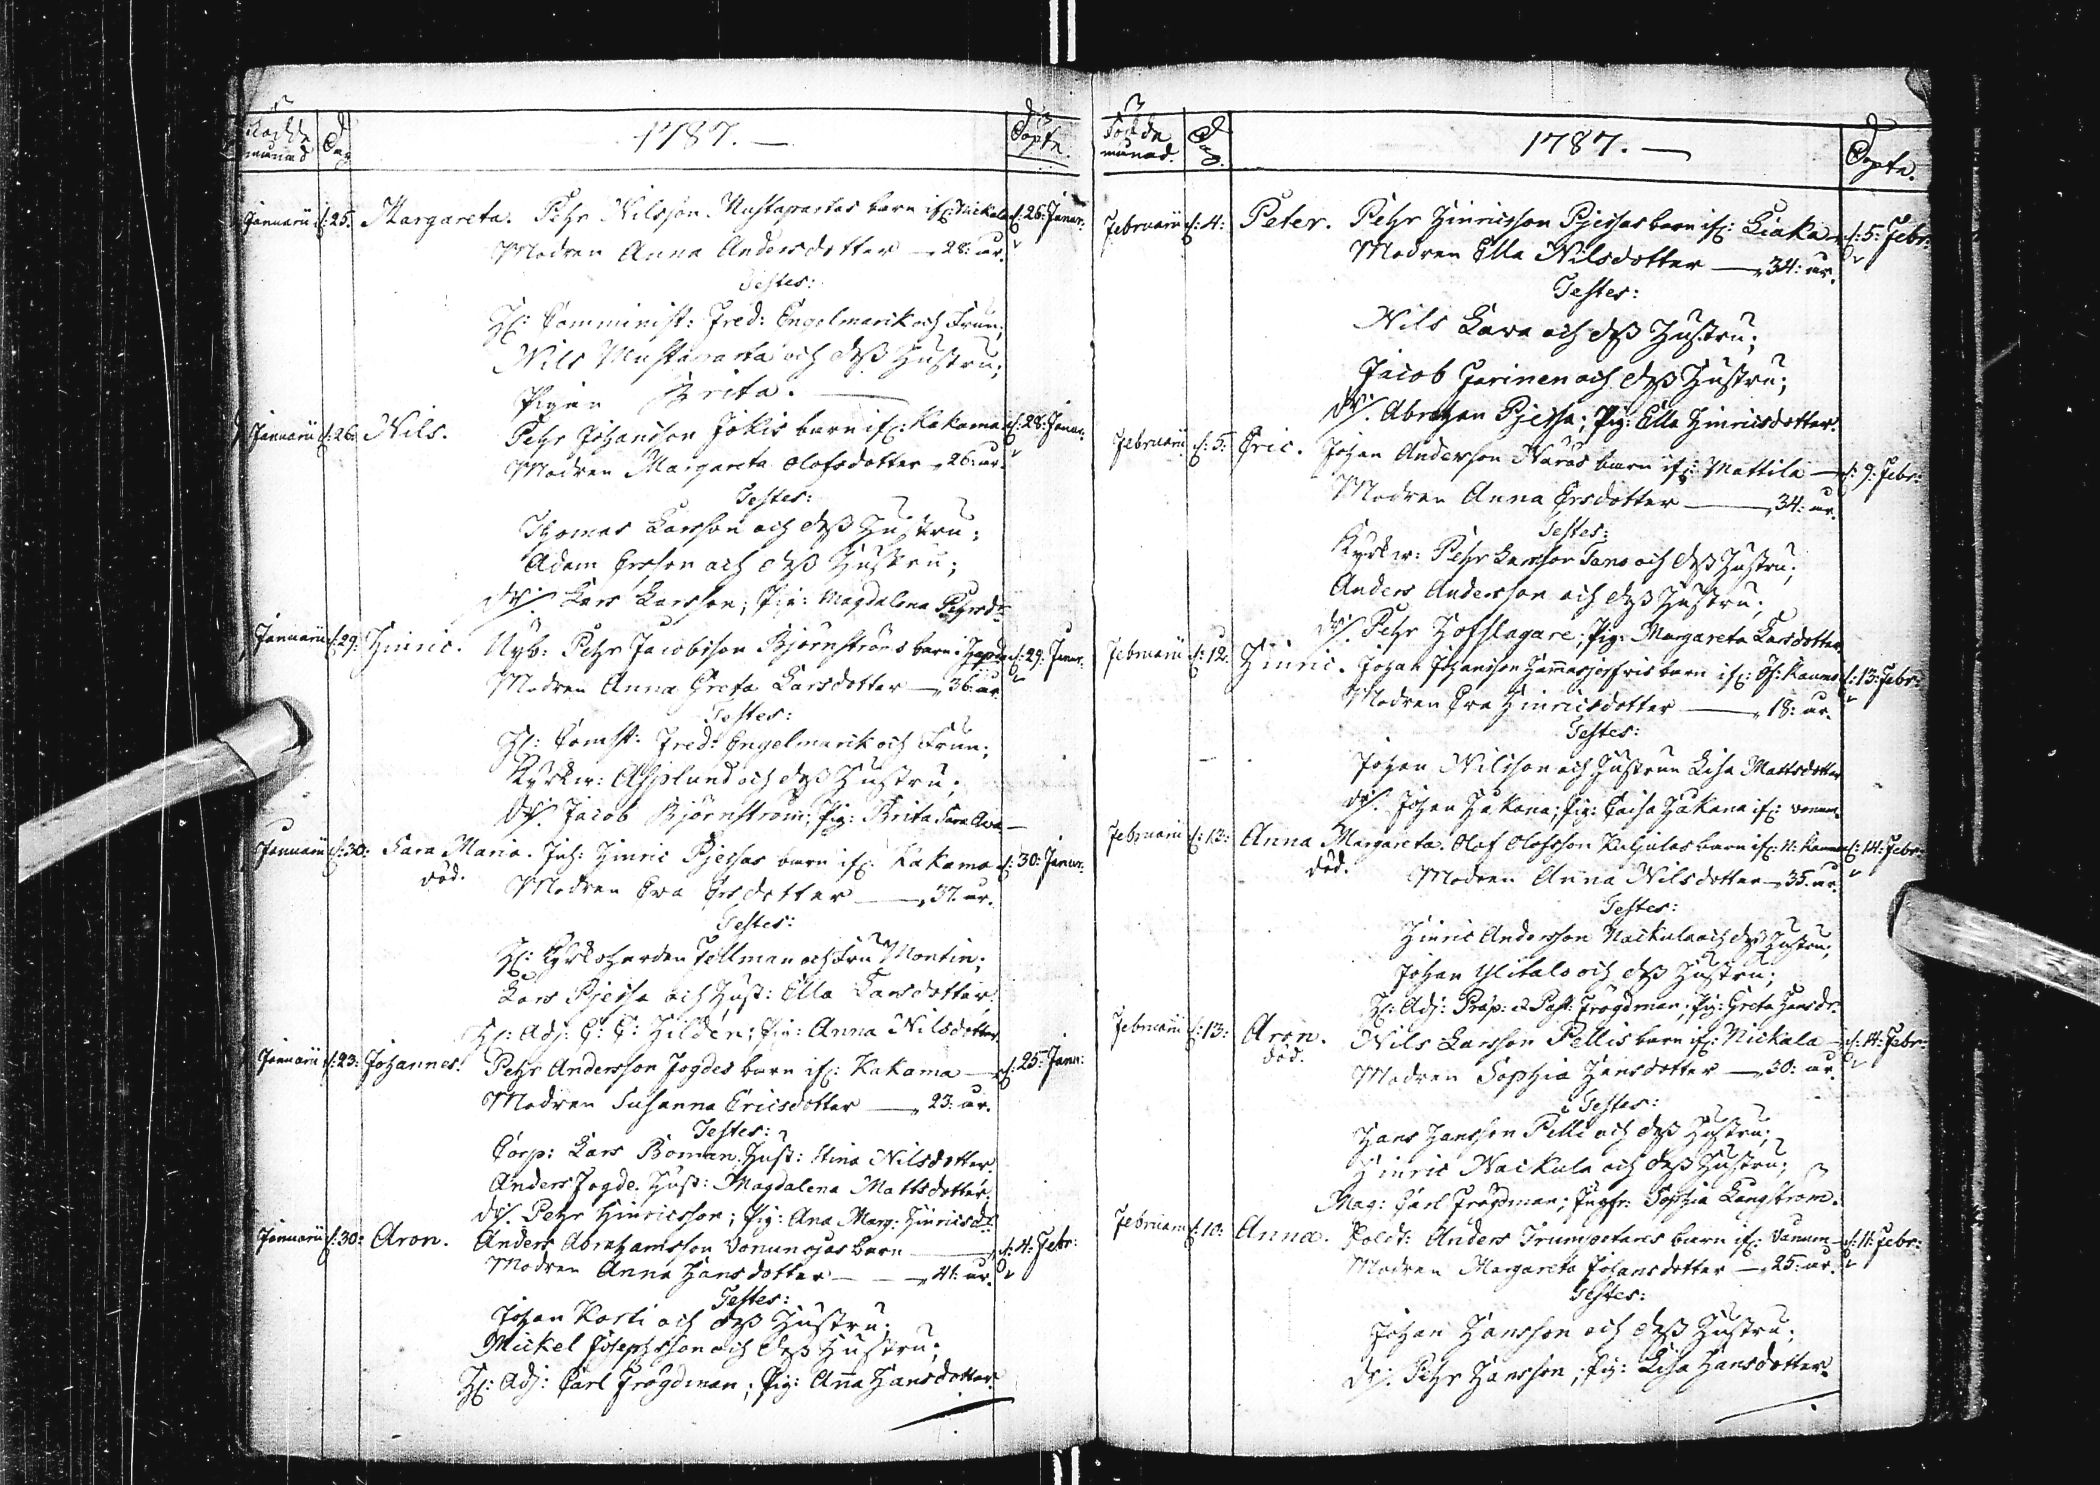 Födde månad Dag 1787. Döpte.
Januarii d: 25. Margareta. Pehr Nilsson Mustapartas barn ifr: Nickala d: 26: Januar:
Modren Anna Andersdotter 28: år.
Testes:
H: Comminist: Fred: Engelmarck och Frun;
Nils Mustaparta och dess Hustru;
Pigan Brita.
Januarii d: 26. Nils. Pehr Johansson Jokis barn ifr: Kakama d: 28: Januar:
Modren Margareta Olofsdotter 26: år.
Testes:
Thomas Larsson och dess Hustru;
Adam Ersson och dess Hustru;
Dr: Lars Larsson; Pig: Magdalena Pehrsdr
Januarii d: 29: Hinric. Nyb: Pehr Jacobsson Björnströms barn d: 29: Januar.
Modren Anna Greta Larsdotter 36: år.
Testes:
H: Comst: Fred: Engelmarck och Frun;
Kyrkv: Asplund och dess Hustru;
Dr: Jacob Björnström; Pig: Brita
Januarii d: 30: Sara Maria. Inh: Hinric Pjessas barn ifr: Kakama d: 30: Januar:
död. Modren Eva Ersdotter 37: år.
Testes:
H: Kyrkoherden Fellman och Fru Montin;
Lars Pjessa och Hust: Ella Larsdotter;
H: Adj: E: E: Hildén; Pig: Anna Nilsdotter
Januarii d: 23: Johannes. Pehr Andersson Jogdes barn ifr: Kakama d: 25: Janu:
Modren Susanna Ericsdotter 23: år.
Testes:
Corp: Lars Boman, Hust: Stina Nilsdotter
Anders Jogde. Hust: Magdalena Mattsdotter.
Dr: Pehr Hinricsson; Pig: Ana Marg: Hinricsdr
Januarii d: 30: Aron. Anders Abrahamsson Vonunsjas barn d: 4: Febr:
Modren Anna Hansdotter 41: år.
Testes:
Johan Korti och dess Hustru;
Mickel Josephsson och dess Hustru;
H: Adj: Carl Frogdman; Pig: Anna Hansdotter
Födde månad. Dag. 1787. Döpte.
Februarii d: 4: Peter. Pehr Hinricsson Pjessas barn ifr: Liaka d: 5: Febr:
Modren Ella Nilsdotter 34: år.
Testes:
Nils Lava och dess Hustru;
Jacob Jarinen och dess Hustru;
Dr: Abraham Pjessa; Pig: Ella Hinricsdotter.
Februarii d: 5: Eric. Johan Andersson Naras barn ifr: Mattila d: 9: Febr:
Modren Anna Ersdotter 34: år.
Testes:
Kyrkv: Pehr Larsson Tano och dess Hustru;
Anders Andersson och dess Hustru;
Dr: Pehr Hofslagare; Pig: Margareta Larsdotter
Februarii d: 12: Hinric. Johan Johansson barn ifr: d: 13: Febr:
Modren Eva Hinricsdotter 18: år.
Testes:
Johan Nilsson och Hustrun Lisa Mattsdotter
Dr: Johan Hakana; Pig: Caisa Hakana ifr:
Februarii d: 13: Anna Margareta. Olof Olofsson Keljulas barn ifr: N: d: 14: Febr:
död. Modren Anna Nilsdotter 35: år.
Testes:
Hinric Andersson Naikula och dess Hustru;
Johan Ylitalo och dess Hustru;
H: Adj: Præp: et Past: Frogdman; Pig: Greta Hansdr.
Februarii d: 13: Aron. Nils Larsson Pellis barn ifr: Nickala d: 14: Febr:
död. Modren Sophia Hansdotter 30: år.
Testes:
Hans Hansson Pelli och dess Hustru;
Hinric Naikula och dess Hustru;
Mag: Carl Frogdman; Jngfr: Sophia Langström.
Februarii d: 10: Anna. Sold: Anders Trumpetares barn ifr: d: 11: Febr:
Modren Margareta Johansdotter 25: år.
Testes:
Johan Hansson och dess Hustru;
Dr: Pehr Hansson; Pig: Lisa Hansdotter